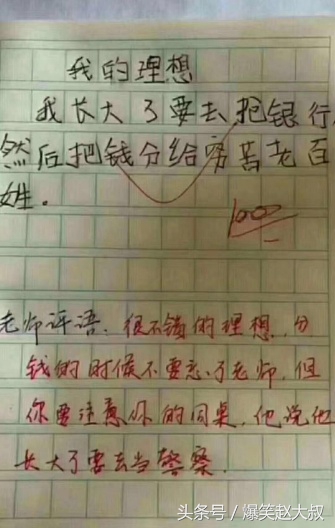 我的理想
我长大了要去抢银行,
然后把钱分给穷苦老百
姓。
老师评语:很不错的理想,分
钱的时候不要忘了老师,但
你要注意你的同桌,他说他
长大了要去当警察.
头条号／爆笑赵大叔